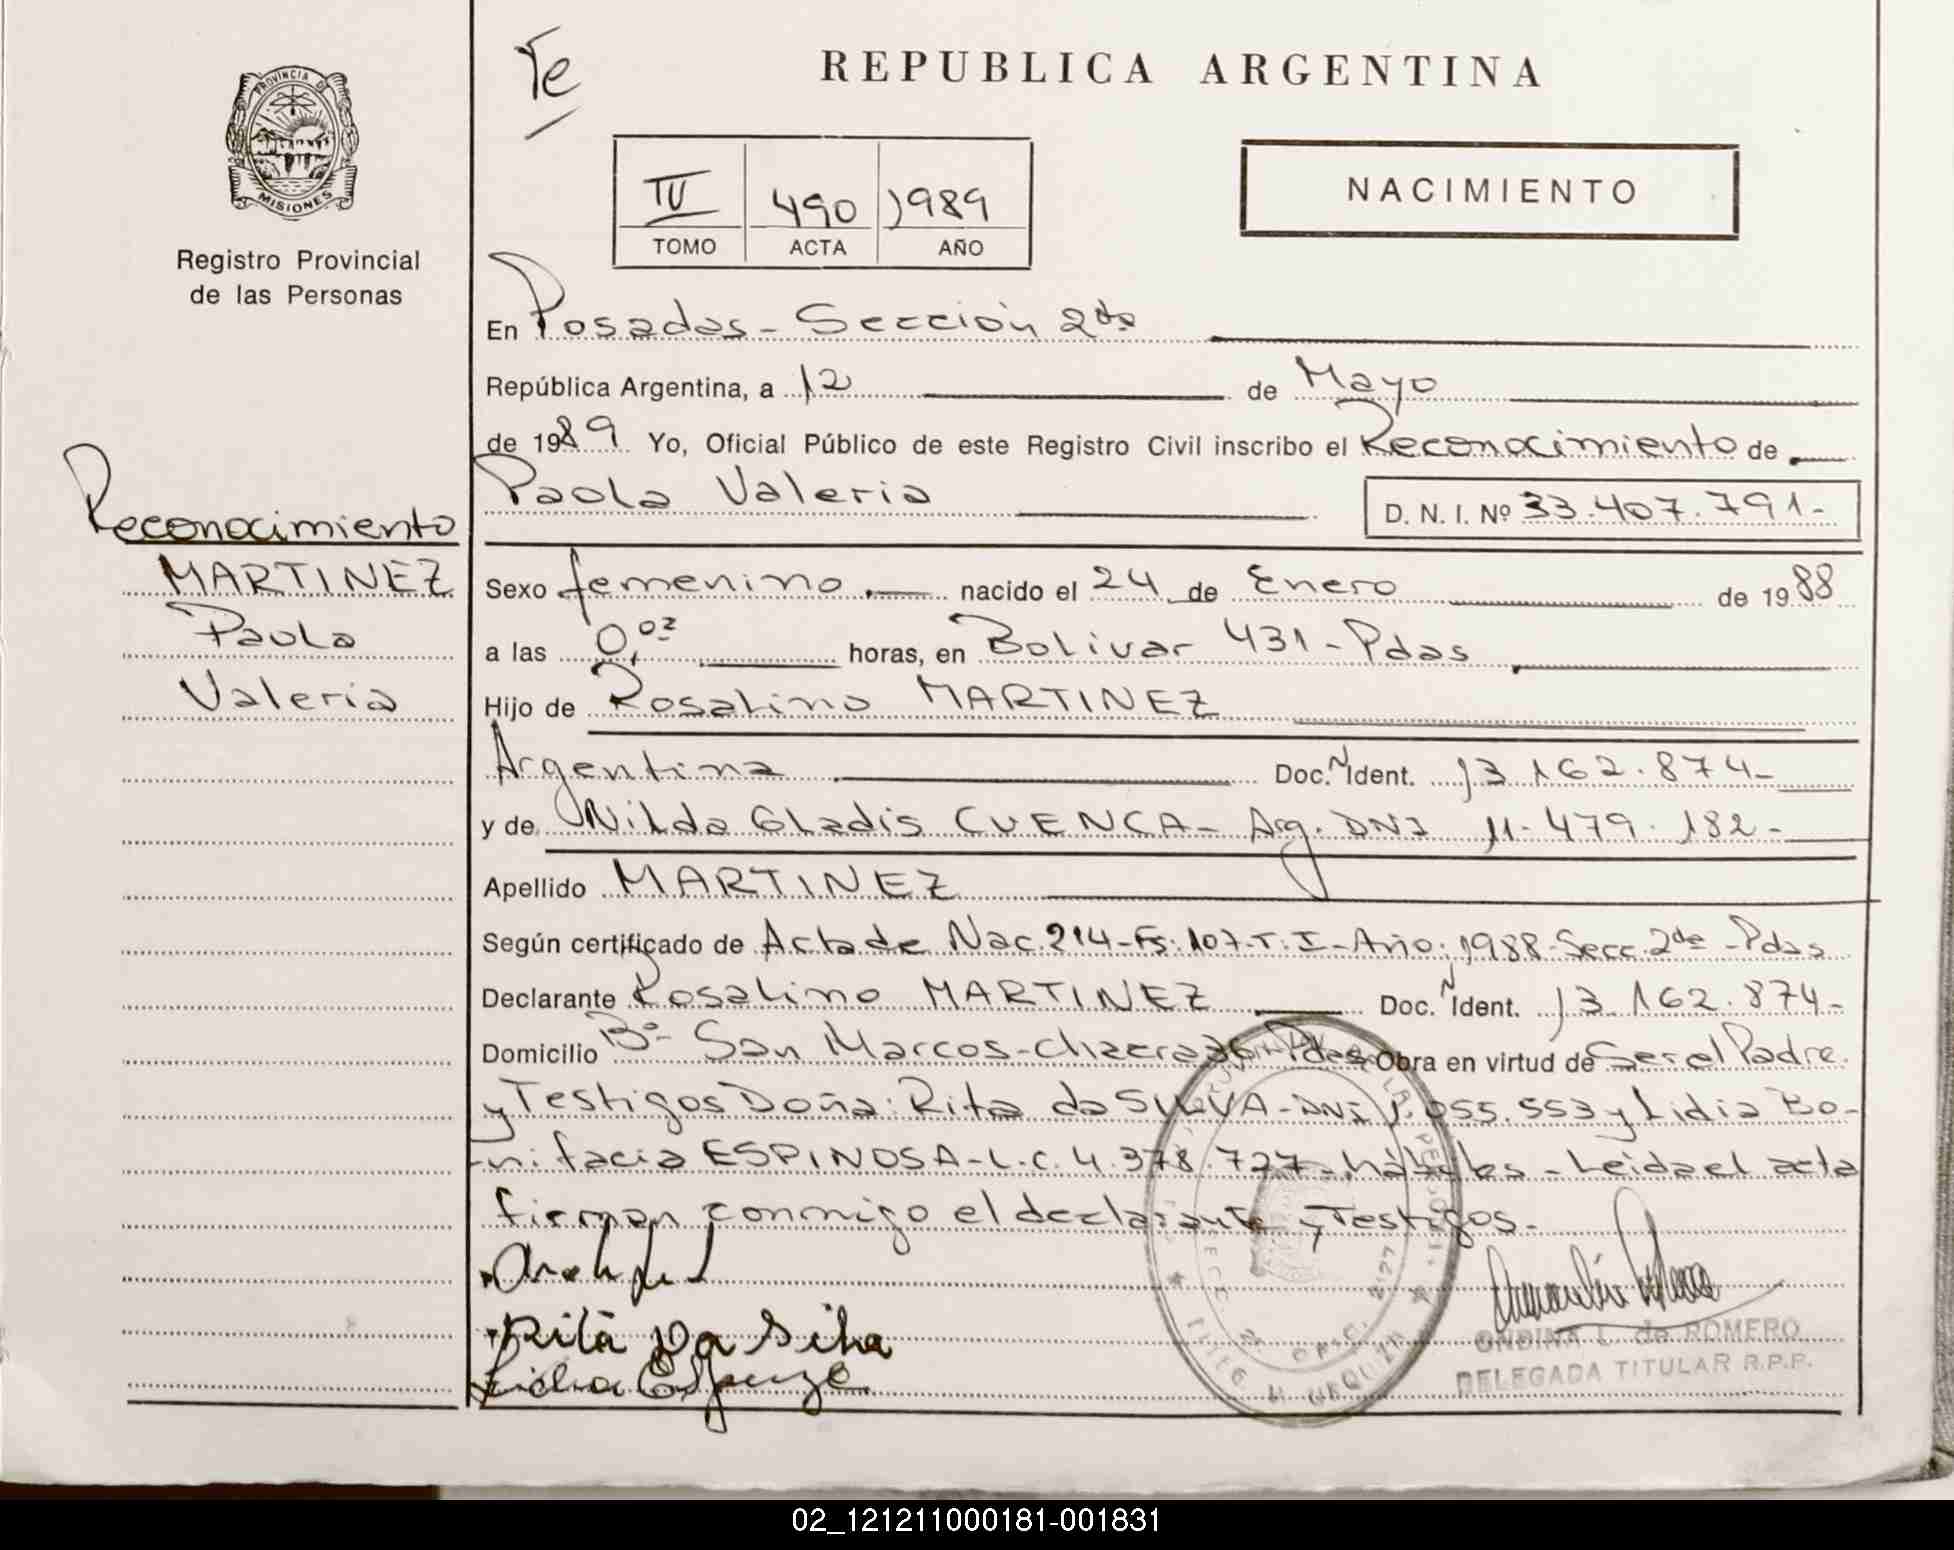 PROVINCIA DE
MISIONES
Registro Provincial
de las Personas
Te
REPUBLICA ARGENTINA
IV 490 1989
TOMO ACTA AÑO
NACIMIENTO
En Posadas - Sección 2da
República Argentina, a 12 de Mayo
de 1989 Yo, Oficial Público de este Registro Civil inscribo el Reconocimiento de
Paola Valeria D. N. I. Nº 33.407.791-
Reconocimiento
MARTINEZ
Paola
Valeria
Sexo femenino nacido el 24 de Enero de 1988
a las horas, en Bolivar 431 - Pdas
Hijo de Rosalino MARTINEZ
Argentina Doc. N Ident. 13.162.874-
y de Nilda Gladis CUENCA - Arg. DNI 11.479.182-
Apellido MARTINEZ
Según certificado de Acta de Nac. 214 - Fs: 107 - T: I - Año: 1988 - Secc. 2da - Pdas
Declarante Rosalino MARTINEZ Doc. N Ident. 13.162.874-
Domicilio Bº San Marcos - Obra en virtud de Ser el Padre
y Testigos Doña: Rita da SILVA - DNI 055.553 y Lidia Bo-
nifacia ESPINOSA - L.C. 4.378.727 - hábiles - Leida el acta
firman conmigo el declarante y Testigos.
Rita Da Silva
Lidia
ONDINA L. de ROMERO
DELEGADA TITULAR R.P.P.
02_121211000181-001831